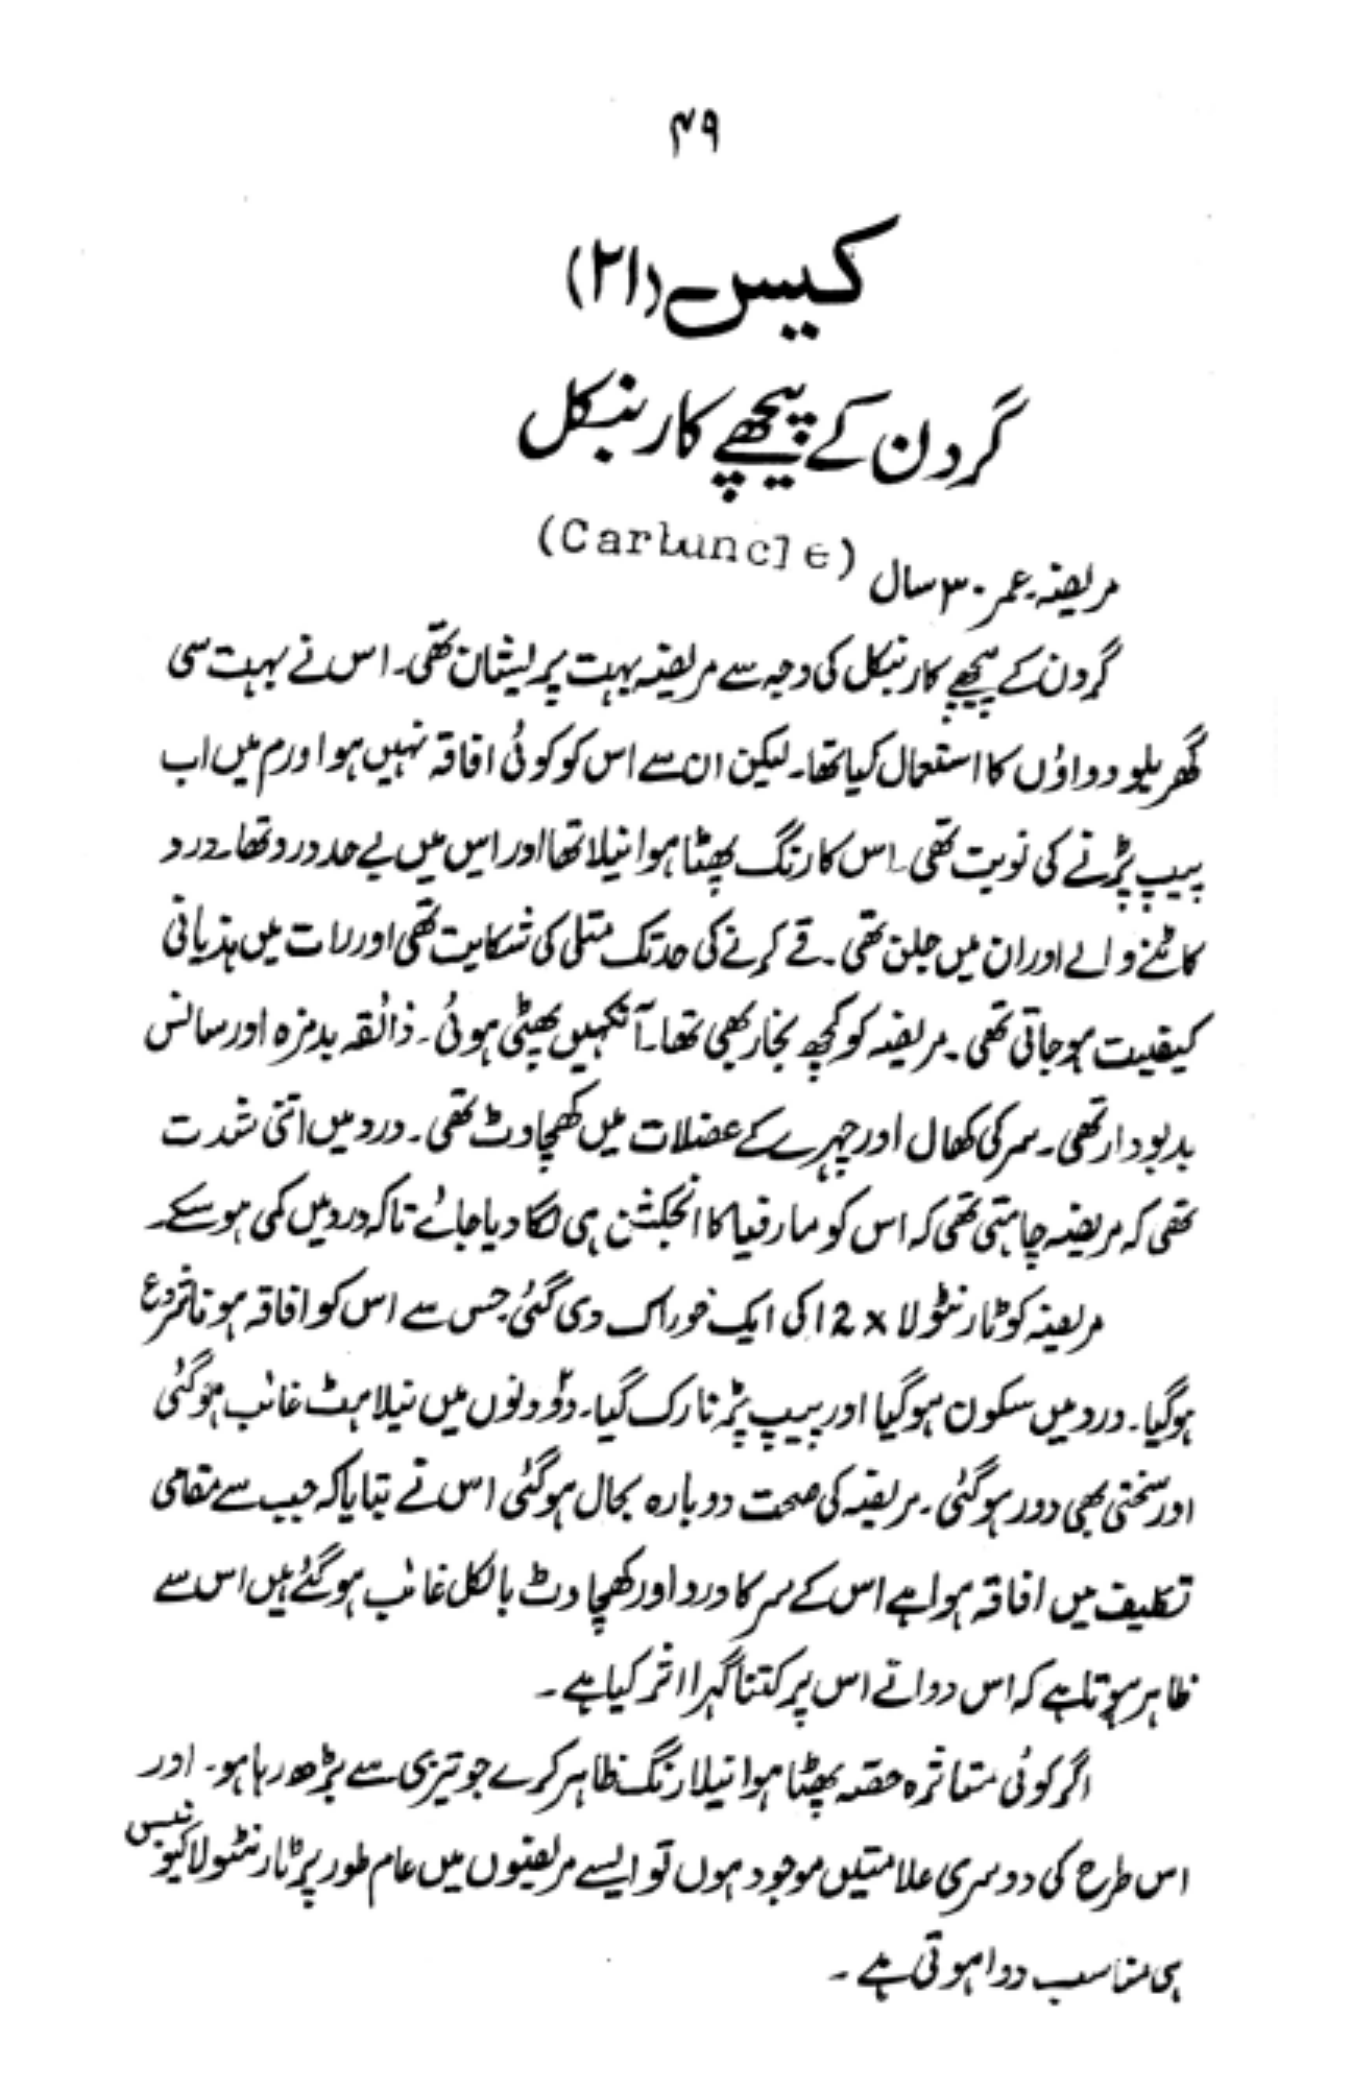 ۴۹
کیس (۲۱)
گردن کے پیچھے کاربنکل
(Carbuncle)
مریضہ۔ عمر ۳۰ سال
گردن کے پیچھے کاربنکل کی وجہ سے مریضہ بہت پریشان تھی۔ اس نے بہت سی
گھریلو دواؤں کا استعمال کیا تھا۔ لیکن ان سے اس کو کوئی افاقہ نہیں ہوا ورم میں اب
پیپ پڑنے کی نوبت تھی۔ اس کا رنگ پھٹا ہوا نیلا تھا اور اس میں بے حد درد تھا۔ درد
کاٹنے والے اور ان میں جلن تھی۔ قے کرنے کی حد تک متلی کی شکایت تھی اور رات میں ہذیانی
کیفیت ہو جاتی تھی۔ مریضہ کو کچھ بخار بھی تھا۔ آنکھیں پھٹی ہوئی۔ ذائقہ بدمزہ اور سانس
بدبودار تھی۔ سر کی کھال اور چہرے کے عضلات میں کھچاوٹ تھی۔ درد میں اتنی شدت
تھی کہ مریضہ چاہتی تھی کہ اس کو مارفیا کا انجکشن ہی لگا دیا جائے تاکہ درد میں کمی ہو سکے۔
مریضہ کو ٹارنٹولا 12x کی ایک خوراک دی گئی جس سے اس کو افاقہ ہونا شروع
ہو گیا۔ درد میں سکون ہو گیا اور پیپ پڑنا رک گیا۔ دو دنوں میں نیلاہٹ غائب ہو گئی
اور سختی بھی دور ہو گئی۔ مریضہ کی صحت دوبارہ بحال ہو گئی اس نے بتایا کہ جب سے مقامی
تکلیف میں افاقہ ہوا ہے اس کے سر کا درد اور کھچاوٹ بالکل غائب ہو گئے ہیں اس سے
ظاہر ہوتا ہے کہ اس دوا نے اس پر کتنا گہرا اثر کیا ہے۔
اگر کوئی متاثرہ حصہ پھٹا ہوا نیلا رنگ ظاہر کرے جو تیزی سے بڑھ رہا ہو۔ اور
اس طرح کی دوسری علامتیں موجود ہوں تو ایسے مریضوں میں عام طور پر ٹارنٹولا کیوبنس
ہی مناسب دوا ہوتی ہے۔